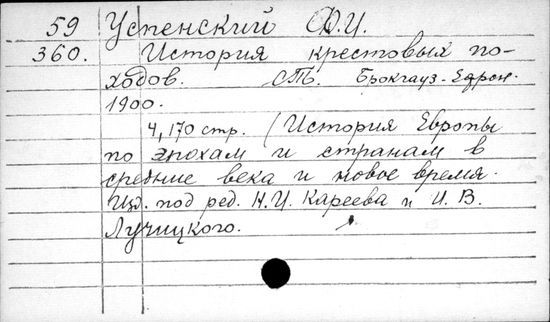 59 Успенский Ф.И.
360. История крестовых по-
ходов. СПб. Брокгауз-Ефрон.
1900.
4,170 стр. (История Европы
по эпохам и странам в
средние века и новое время.
Изд. под ред. Н.И. Кареева и И.В.
Лучицкого.